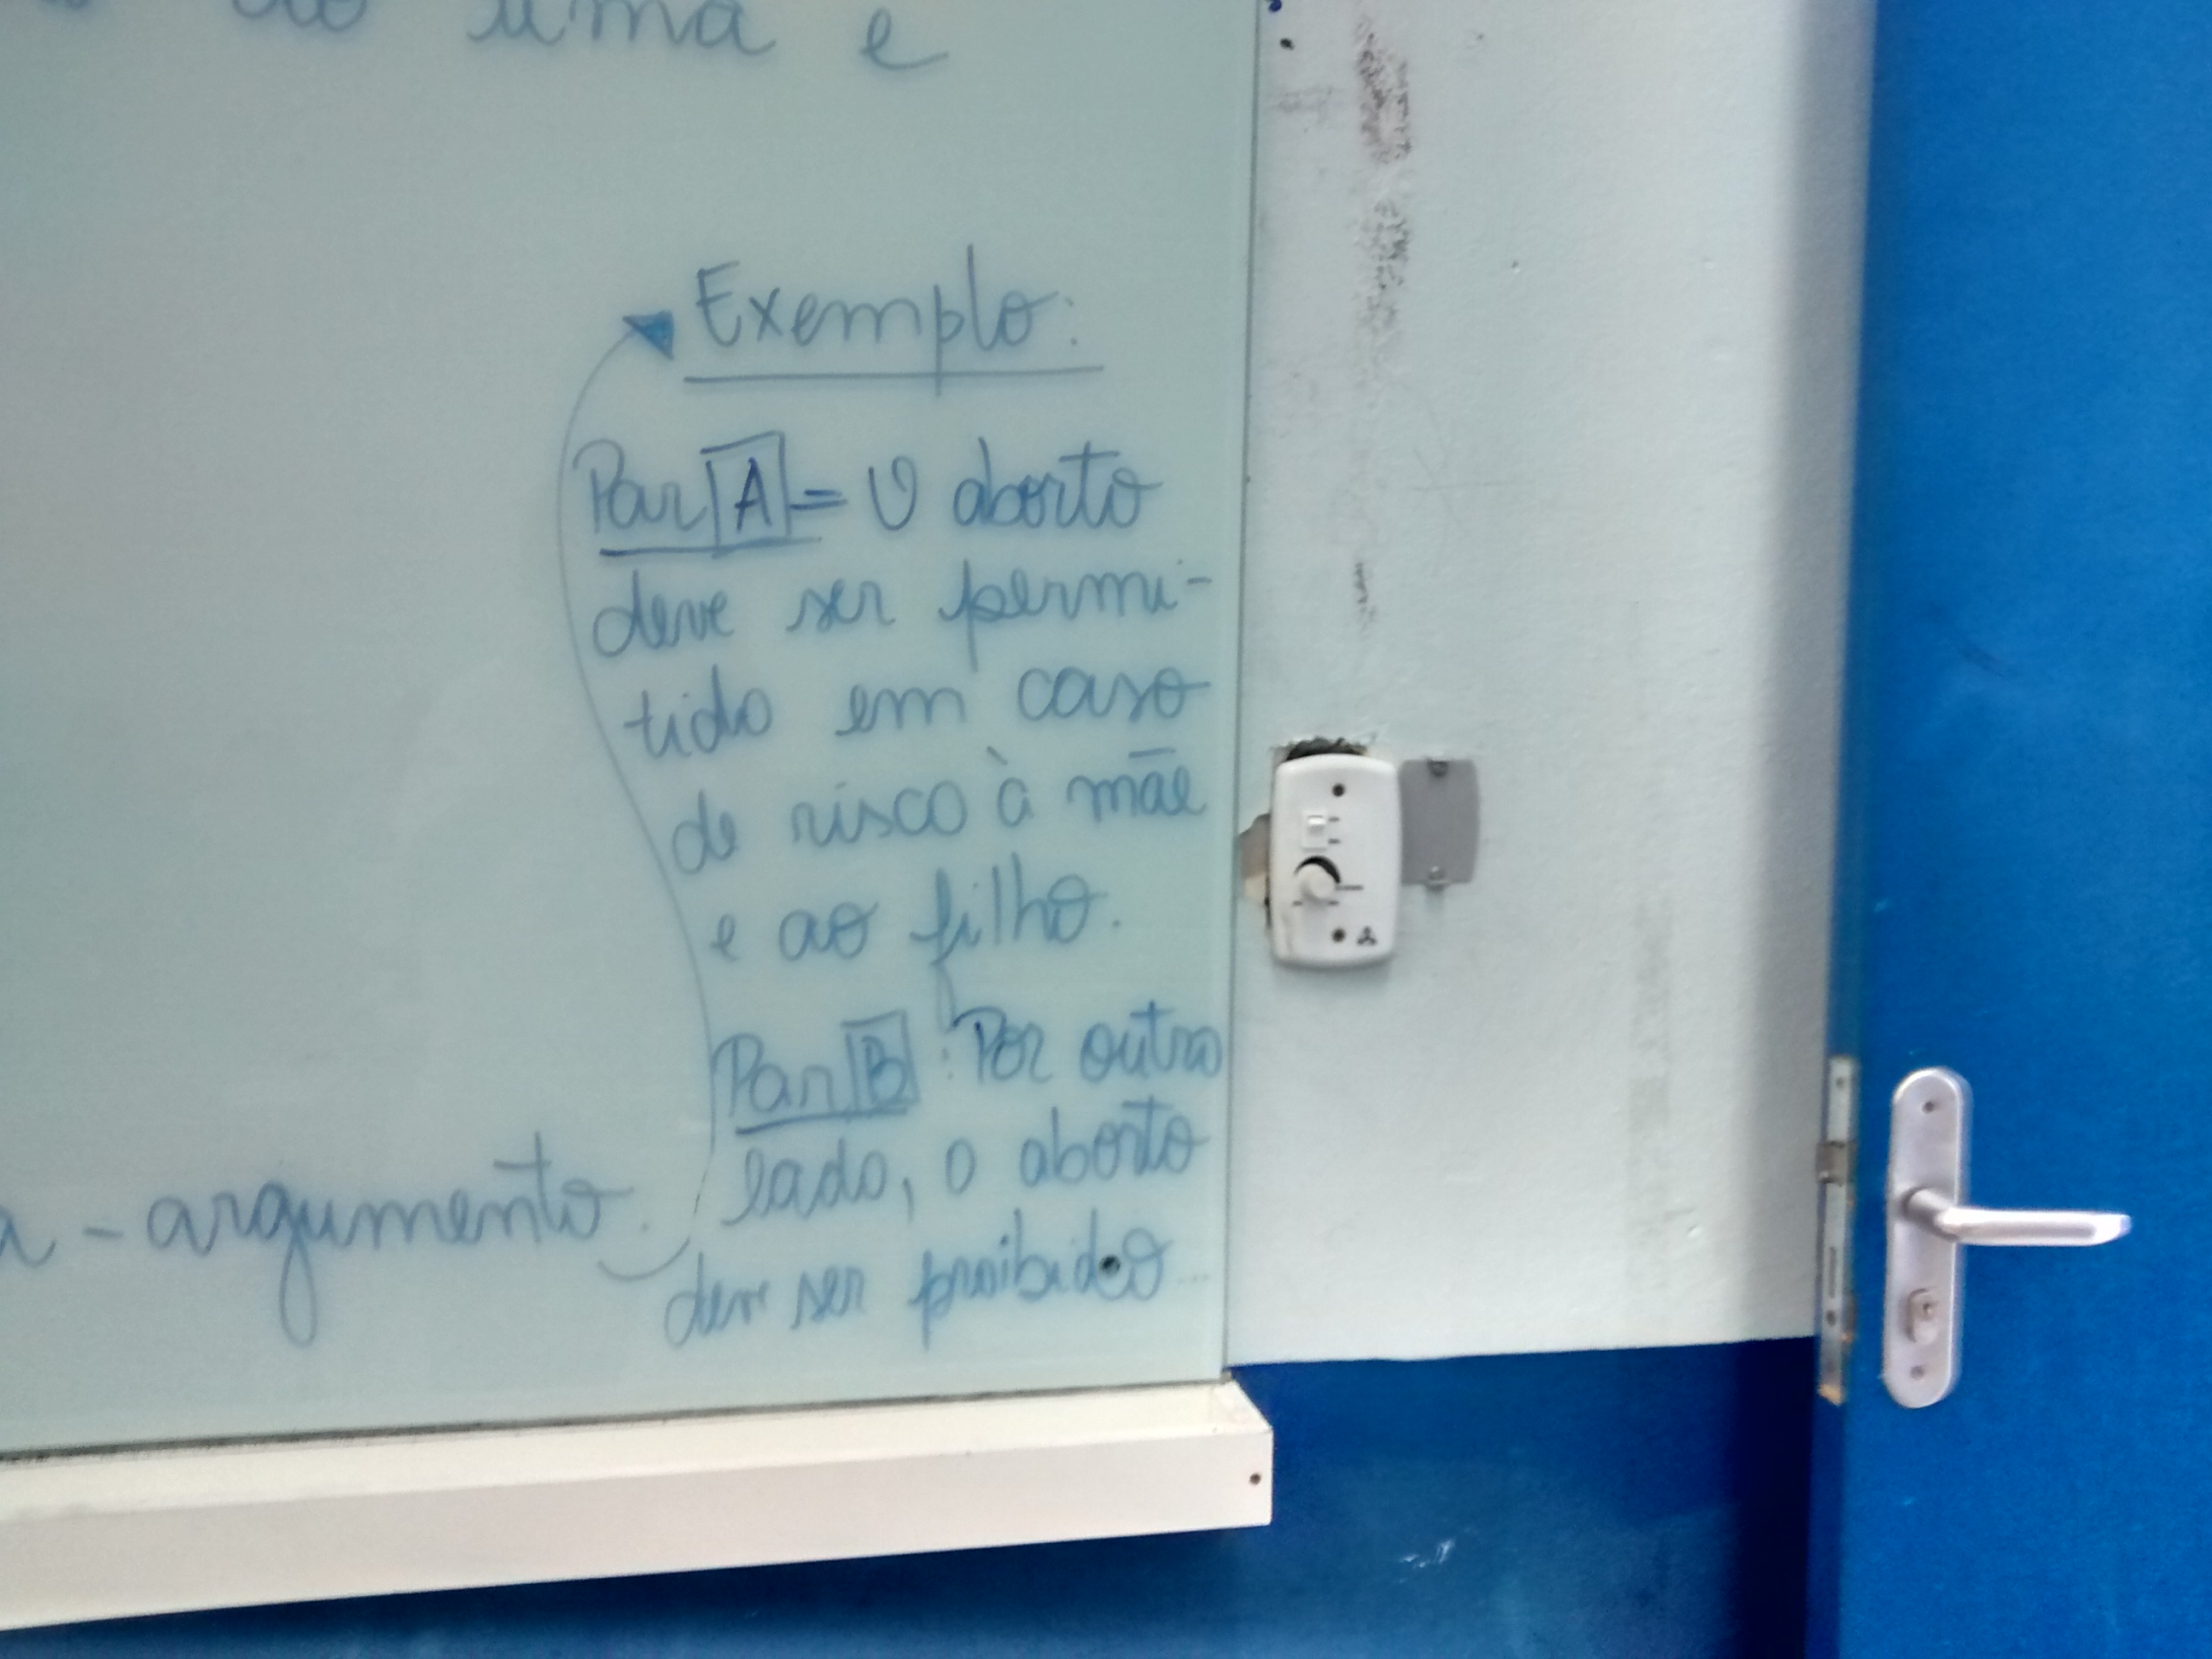 uma e
Exemplo:
Par A = O aborto
deve ser permi-
tido em caso
de risco à mãe
e ao filho.
Par B : Por outro
lado, o aborto
deve ser proibido...
-argumento.